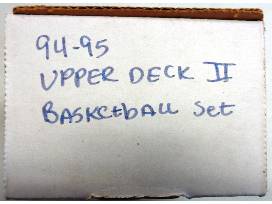 94-95
UPPER DECK II
BASKEtbALL Set